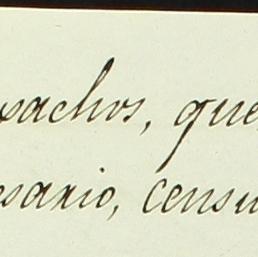 xachos, que
esario, censu